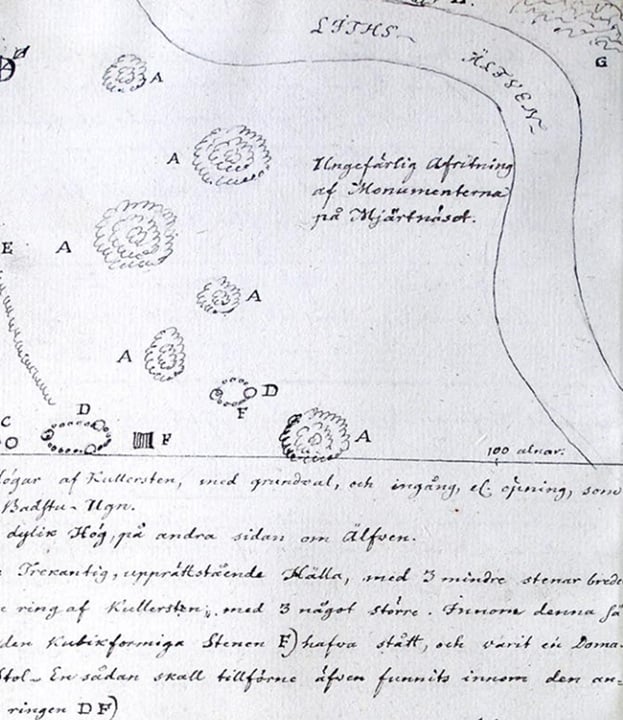 LITHS-
ÄLFVEN
G
A
A
E A
A
A
D
F
C
D
F
A
Ungefärlig Afritning
af Monumenterna
på Mjärtnäset.
100 alnar.
högar af Kullersten, med grundval, och ingång, el. öpning, som
Badstu-Ugn.
dylik Hög, på andra sidan om Älfven.
Trekantig, upprättstående Hälla, med 3 mindre stenar brede
ring af Kullersten, med 3 något större. Innom denna
den Kubikformiga Stenen F) hafva stått, och varit en Doma-
Stol- En sådan skall tillförne äfven funnits innom den an-
ringen D F)